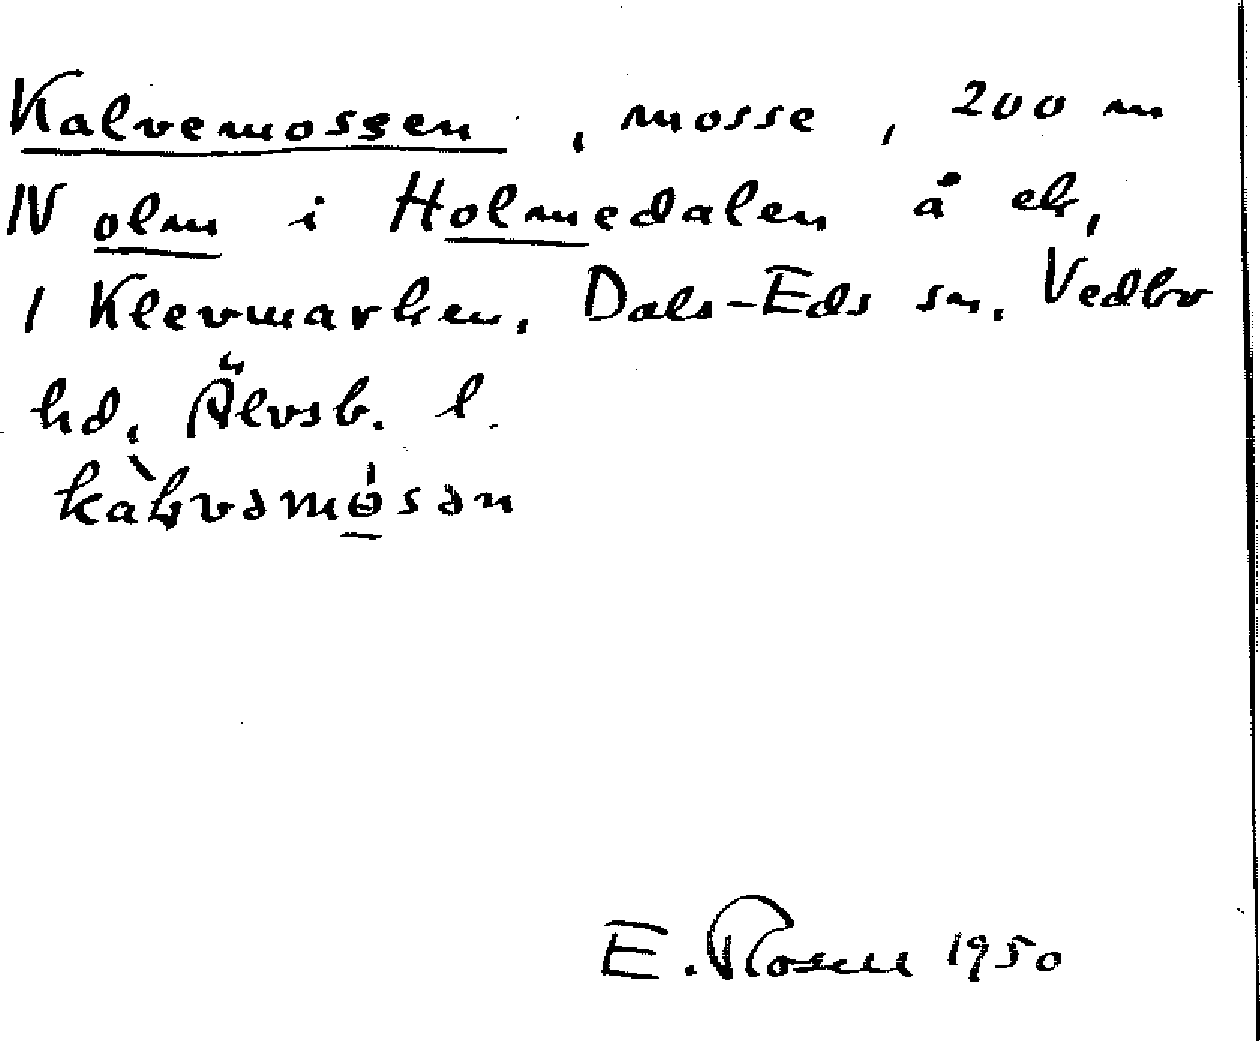 Kalvemossen, mosse, 200 m
N olm i Holmedalen å ek,
1 Klevmarken, Dals-Eds sn, Vedbo
hd, Älvsb. l.
E. Rosell 1950